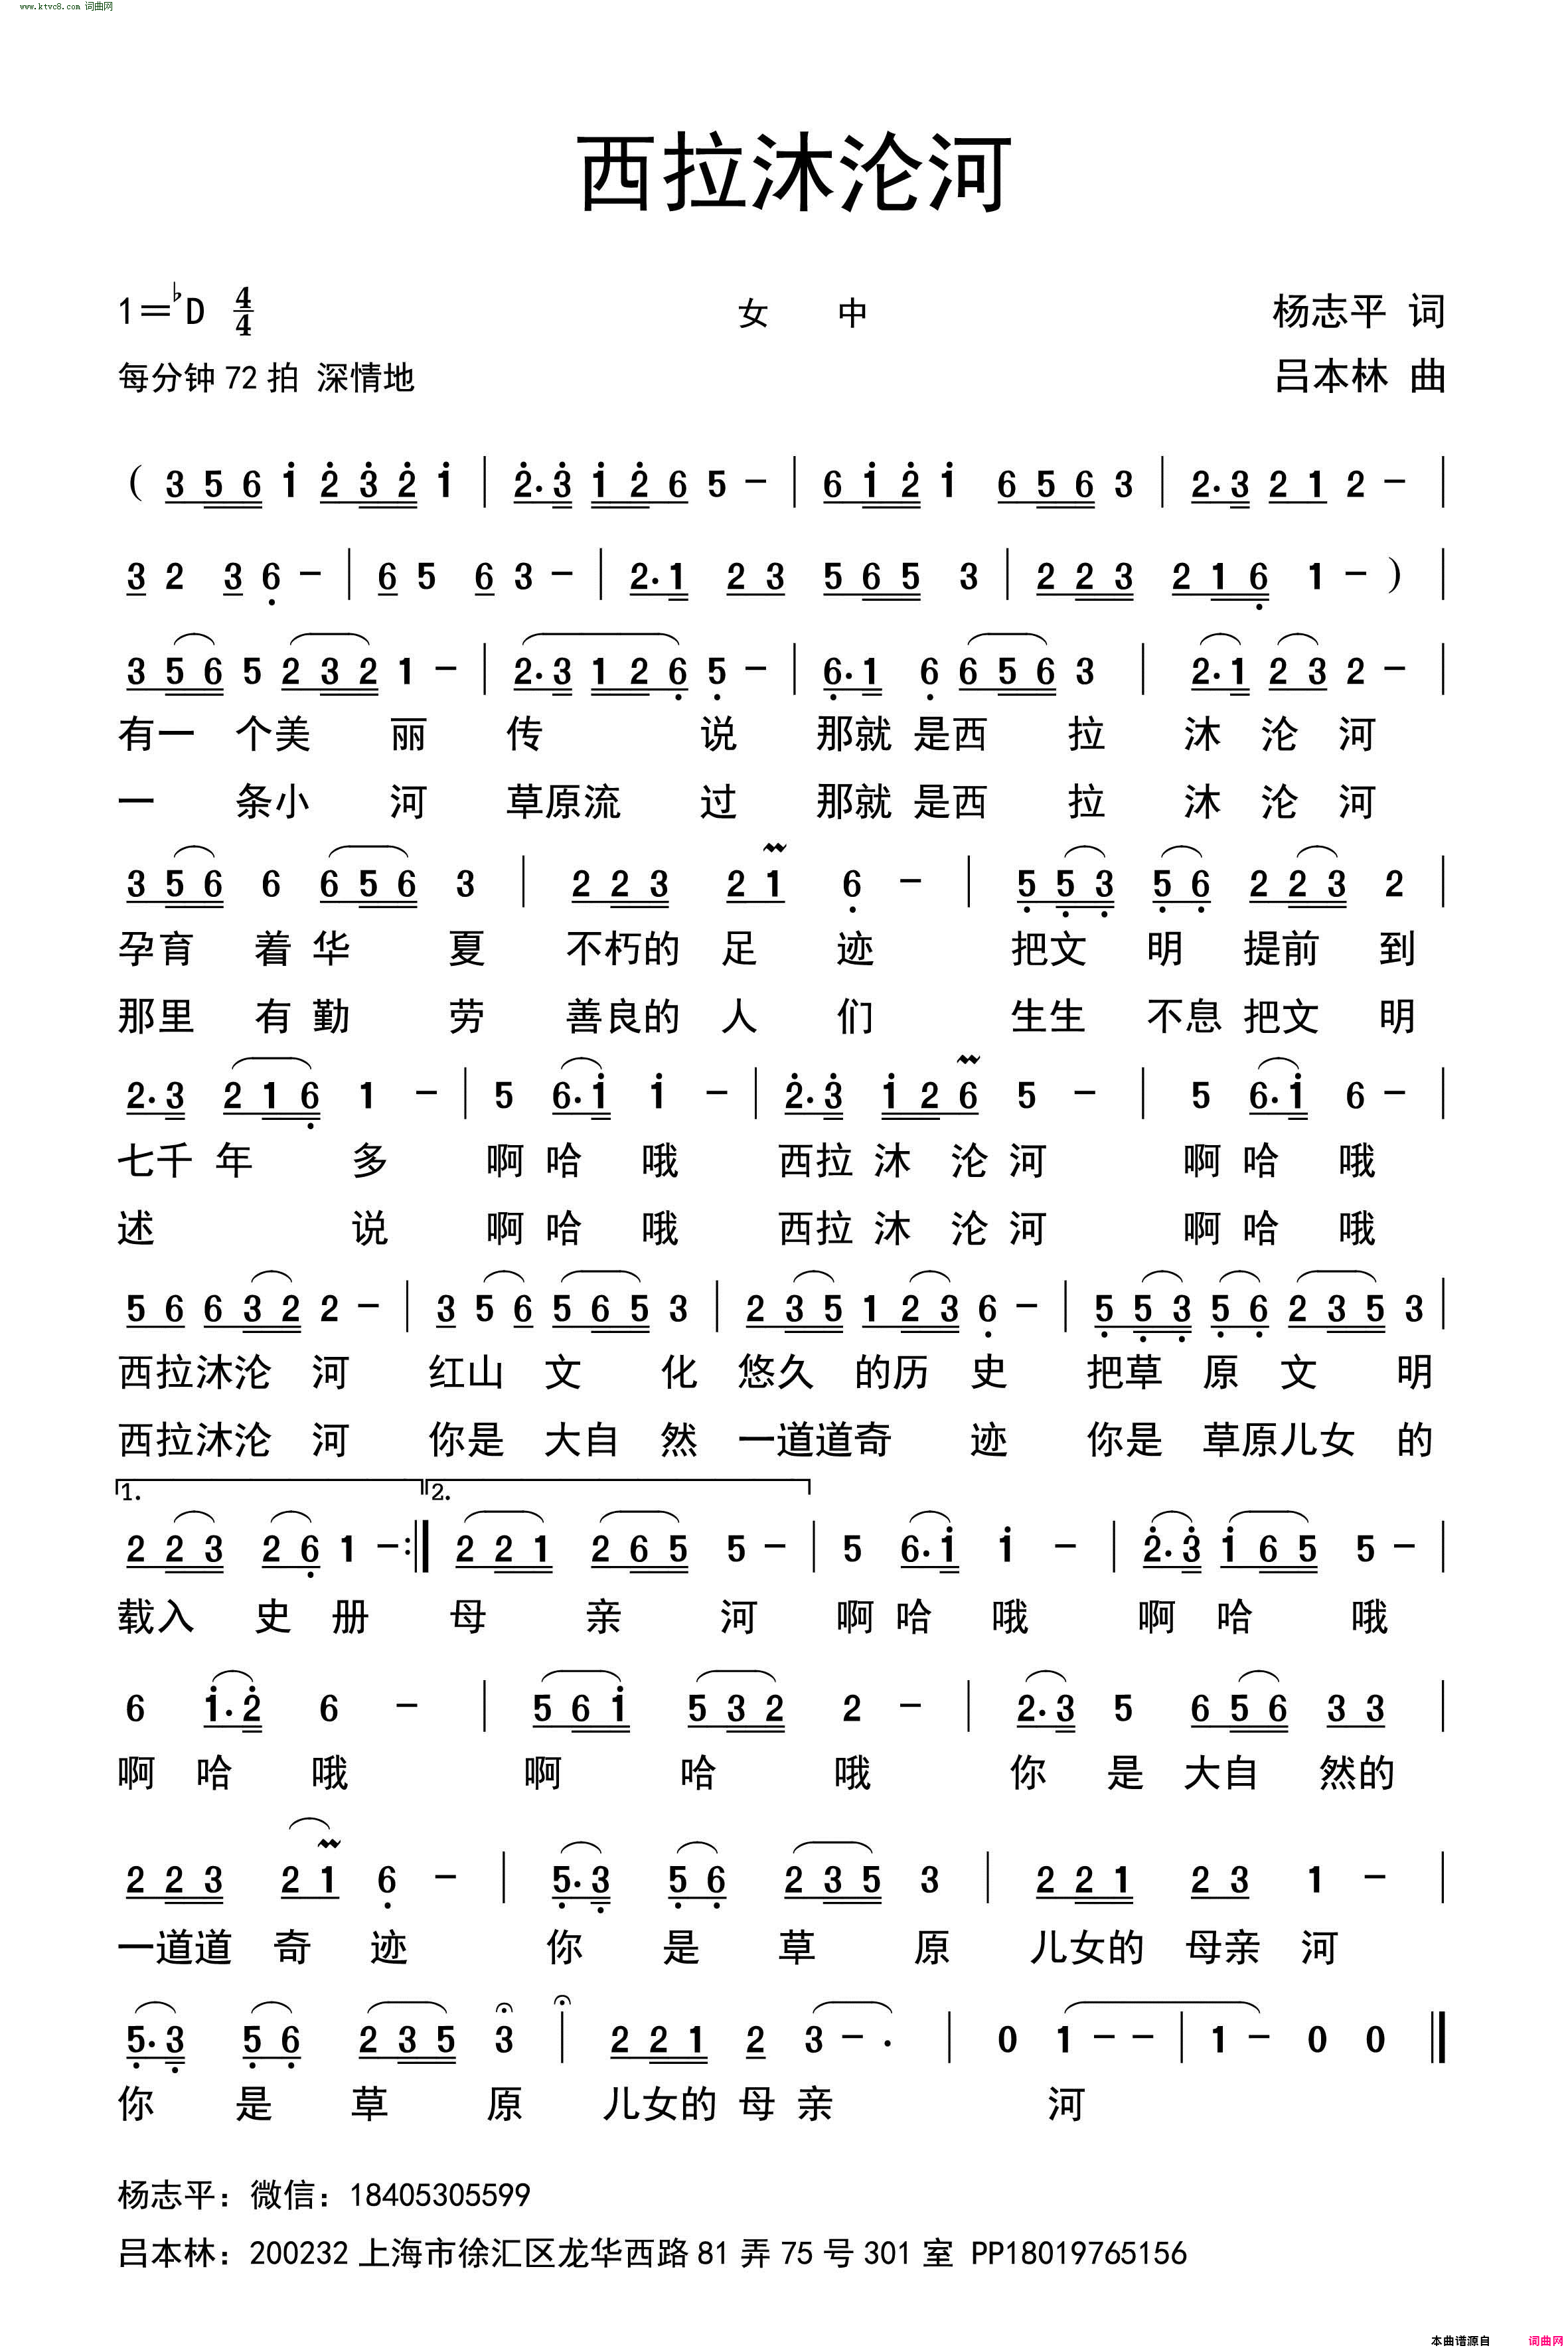 www.ktvc8.com 词曲网
西拉沐沦河
1=♭D 4/4 女 中 杨志平 词
每分钟72拍 深情地 吕本林 曲
( 3 5 6 i 2 3 2 i | 2. 3 i 2 6 5 - | 6 i 2 i 6 5 6 3 | 2. 3 2 1 2 - |
3 2 3 6 - | 6 5 6 3 - | 2. 1 2 3 5 6 5 3 | 2 2 3 2 1 6 1 - ) |
3 5 6 5 2 3 2 1 - | 2. 3 1 2 6 5 - | 6. 1 6 6 5 6 3 | 2. 1 2 3 2 - |
有一 个美 丽 传 说 那就 是西 拉 沐 沦 河
一 条小 河 草原流 过 那就 是西 拉 沐 沦 河
3 5 6 6 6 5 6 3 | 2 2 3 2 1 6 - | 5 5 3 5 6 2 2 3 2 |
孕育 着 华 夏 不朽的 足 迹 把文 明 提前 到
那里 有 勤 劳 善良的 人 们 生生 不息 把文 明
2. 3 2 1 6 1 - | 5 6. i i - | 2. 3 i 2 6 5 - | 5 6. i 6 - |
七千 年 多 啊 哈 哦 西拉 沐 沦 河 啊 哈 哦
述 说 啊 哈 哦 西拉 沐 沦 河 啊 哈 哦
5 6 6 3 2 2 - | 3 5 6 5 6 5 3 | 2 3 5 1 2 3 6 - | 5 5 3 5 6 2 3 5 3 |
西拉沐沦 河 红山 文 化 悠久 的历 史 把草 原 文 明
西拉沐沦 河 你是 大自 然 一道道奇 迹 你是 草原儿女 的
1. 2.
2 2 3 2 6 1 - :‖ 2 2 1 2 6 5 5 - | 5 6. i i - | 2. 3 i 6 5 5 - |
载入 史 册 母 亲 河 啊 哈 哦 啊 哈 哦
6 i. 2 6 - | 5 6 i 5 3 2 2 - | 2. 3 5 6 5 6 3 3 |
啊 哈 哦 啊 哈 哦 你 是 大自 然的
2 2 3 2 1 6 - | 5. 3 5 6 2 3 5 3 | 2 2 1 2 3 1 - |
一道道 奇 迹 你 是 草 原 儿女的 母亲 河
5. 3 5 6 2 3 5 3 | 2 2 1 2 3 - . | 0 1 - - | 1 - 0 0 ‖
你 是 草 原 儿女的 母 亲 河
杨志平：微信：18405305599
吕本林：200232上海市徐汇区龙华西路81弄75号301室 PP18019765156
本曲谱源自 词曲网